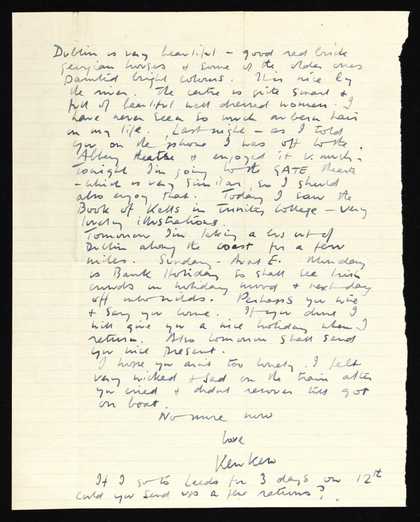 Dublin is very beautiful - good red brick
georgian houses & some of the older ones
painted bright colours. It is nice by
the river. The centre is quite smart &
full of beautiful well dressed women. I
have never seen so much auburn hair
in my life. Last night - as I told
you on the phone I was off to the
Abbey theatre & enjoyed it v. much.
Tonight I'm going to the GATE theatre
- which is very similar, so I should
also enjoy that. Today I saw the
Book of Kells in Trinity College - very
lovely illustrations.
Tomorrow I'm taking a bus out of
Dublin along the coast for a few
miles. Sunday - E. Monday
is Bank Holiday so shall see Irish
crowds in holiday mood & next day
off. Perhaps you will
& say you home. If you dare I
will give you a nice holiday when I
return. Also tomorrow shall send
you nice present.
I hope you aint too lonely. I felt
very wicked & sad on the train after
you cried & didnt recover till got
on boat.
No more now
love
KenKen
If I go to Leeds for 3 days on 12th
could you send us a few returns?